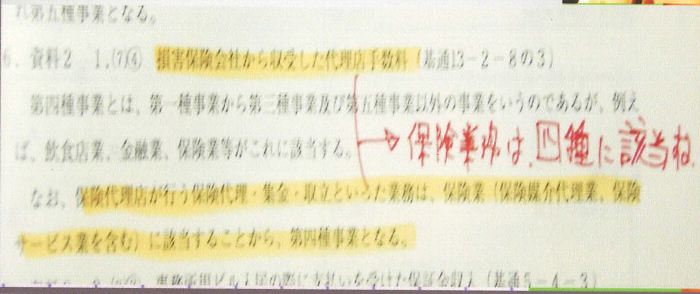 れ第五種事業となる。
6. 資料2 1.(7)④ 損害保険会社から収受した代理店手数料(基通13-2-8の3)
第四種事業とは、第一種事業から第三種事業及び第五種事業以外の事業をいうのであるが、例え
ば、飲食店業、金融業、保険業等がこれに該当する。
→保険業務は、四種に該当ね、
なお、保険代理店が行う保険代理・集金・取立といった業務は、保険業(保険媒介代理業、保険
サービス業を含む)に該当することから、第四種事業となる。
事務所用ビル入居の際に支払いを受けた保証金収入(基通5-4-3)